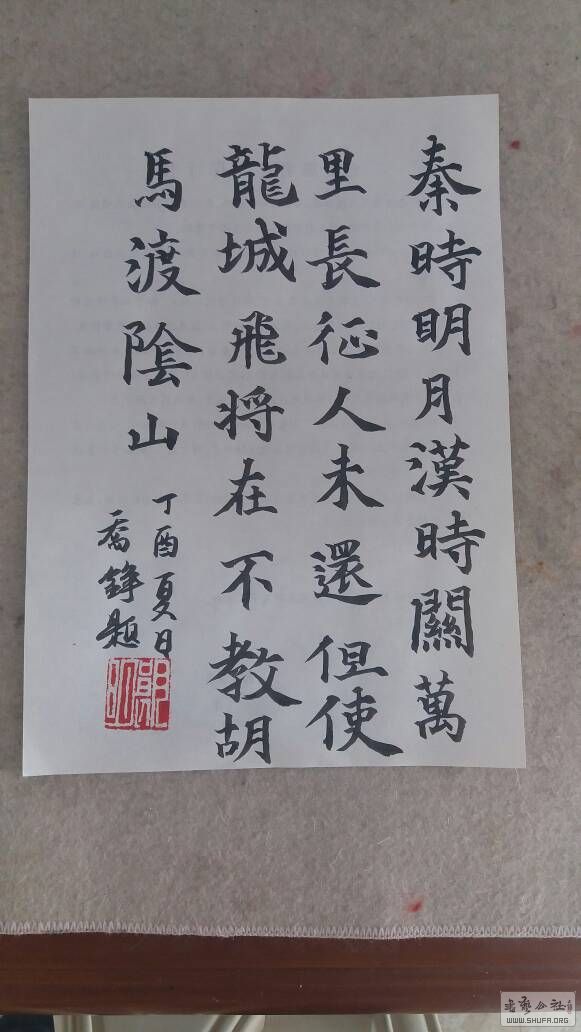 秦時明月漢時關萬
里長征人未還但使
龍城飛将在不教胡
馬渡陰山
丁酉夏日
喬錚題
WWW.SHUFA.ORG